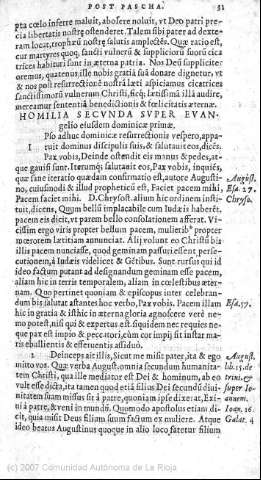 POST PASCHA. 51
pta cœlo inferre maluit, abesse noluit, vt Deo patri pre-
cia libertatis nostrę ostenderet. Talem sibi pater ad dexte-
ram locat, tropæũ nostrę salutis amplectẽs. Quæ ratio est,
cur martyres quoq; sancti vulnerũ & suppliciorũ suorũ cica
trices habituri sunt in æterna patria. Nos Deũ suppliciter
oremus, quatenus ille nobis gratia suã donare dignetur, vt
& nos post resurrectionẽ nostrã læti aspiciamus cicatrices
sanctissimorũ vulnerum Christi, sicq; lætissimã illã audire
mereamur sententiã benedictionis & fœlicitatis æternæ.
HOMILIA SECVNDA SVPER EVAN-
gelio eiusdem dominicæ primæ.
IPso adhuc dominicæ resurrectionis vespero, appa-
ruit dominus discipulis suis, & salutauit eos, dicẽs:
Pax vobis, Deinde ostendit eis manus & pedes, at-
que gauisi sunt. Iterumq; salutauit eos, Pax vobis, inquiẽs,
quæ sane iteratio quædam confirmatio est, autore Augusti-
no, cuiusmodi & illud propheticũ est, Faciet pacem mihi,
Pacem faciet mihi. D. Chrysost. alium hic ordinem insti-
tuit, dicens, Quum bellũ implacabile cum Iudæis haberẽt,
pacem eis dicit, vt parem bello consolationem afferat. Vi-
cissim ergo viris propter bellum pacem, mulieribꝰ propter
mœrorem lætitiam annunciat. Alij volunt eo Christũ bis
illis pacem nunciasse, quod geminam passuri essent perse-
cutionem, à Iudæis videlicet & Gẽtibus. Sunt rursus qui id
ideo factum putant ad designandum geminam esse pacem,
aliam hic in terris temporalem, aliam in cœlestibus æter-
nam. Quo pertinet quoniam & episcopus inter celebran-
dum bis salutat astantes hoc verbo, Pax vobis. Pacem illam
hic in gratia & isthic in æterna gloria agnoscere verè ne-
mo potest, nisi qui & expertus est. siquidem nec requies ne-
que pax est impio & peccatori, cùm cor impij sit instar ma-
ris ebullientis & efferuentis assiduò.
2 Deinceps ait illis, Sicut me misit pater, ita & ego
mitto vos. Quæ verba August. omnia secundum humanita-
tem Christi, qua ille mediator est Dei & hominum, ab eo
vult esse dicta, ita tamen quod etiã filius Dei secundũ diuini-
nitatem suam missus sit à patre, quoniam ipse dixerat, Exi-
ui à patre, & veni in mundũ. Quomodo apostolus etiam di-
cit, quia misit Deus filium suum factum ex muliere. Atque
ideo beatus Augustinus quoque in alio loco fatetur filium
August.
Esa. 27.
Chryso.
Esa. 57.
August.
lib. 15. de
trini. &
super Io-
annem.
Ioan. 16.
Galat. 4
(c) 2007 Comunidad Autónoma de La Rioja